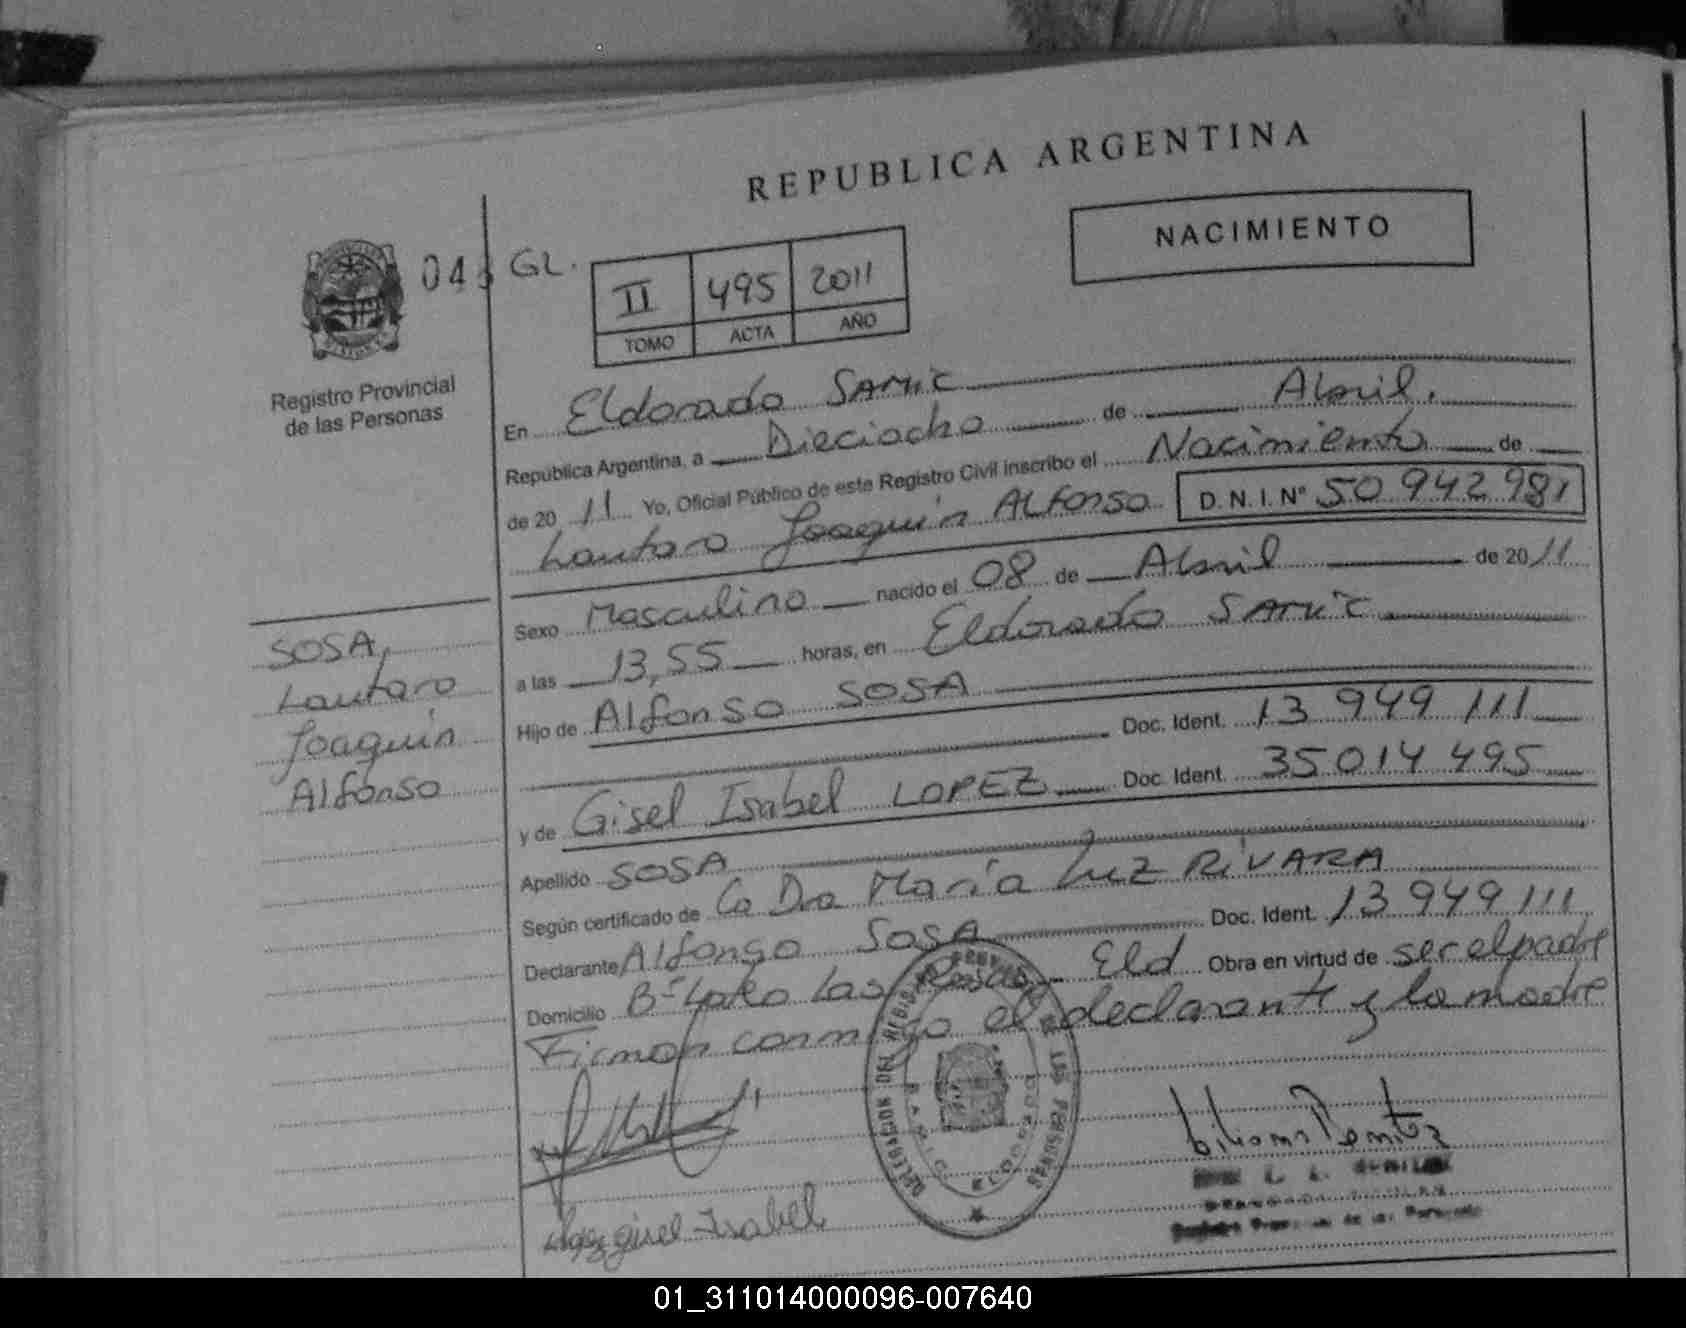 REPUBLICA ARGENTINA
NACIMIENTO
04 GL.
II 495 2011
TOMO ACTA AÑO
Registro Provincial
de las Personas
En Eldorado SAMIC
República Argentina, a Dieciocho de Abril.
de 20 11 Yo, Oficial Público de este Registro Civil inscribo el Nacimiento de
Lautaro Joaquín ALFONSO D.N.I. Nº 50 942 981
Sexo Masculino nacido el 08 de Abril de 20 11
a las 13,55 horas, en Eldorado SAMIC
Hijo de Alfonso SOSA
Doc. Ident. 13 949 111
y de Gisel Isabel LOPEZ Doc. Ident. 35 014 495
Apellido SOSA
Según certificado de La Dra María Luz RIVARA
Declarante Alfonso SOSA Doc. Ident. 13 949 111
Domicilio Bº Las Rosas Eld Obra en virtud de ser el padre
Firman conmigo el declarante y la madre
SOSA,
Lautaro
Joaquín
Alfonso
DELEGACION DEL REGISTRO PROVINCIAL DE LAS PERSONAS
ELDORADO
Lopez gisel Isabel
Liliana Benitez
Registro Provincial de las Personas
01_311014000096-007640